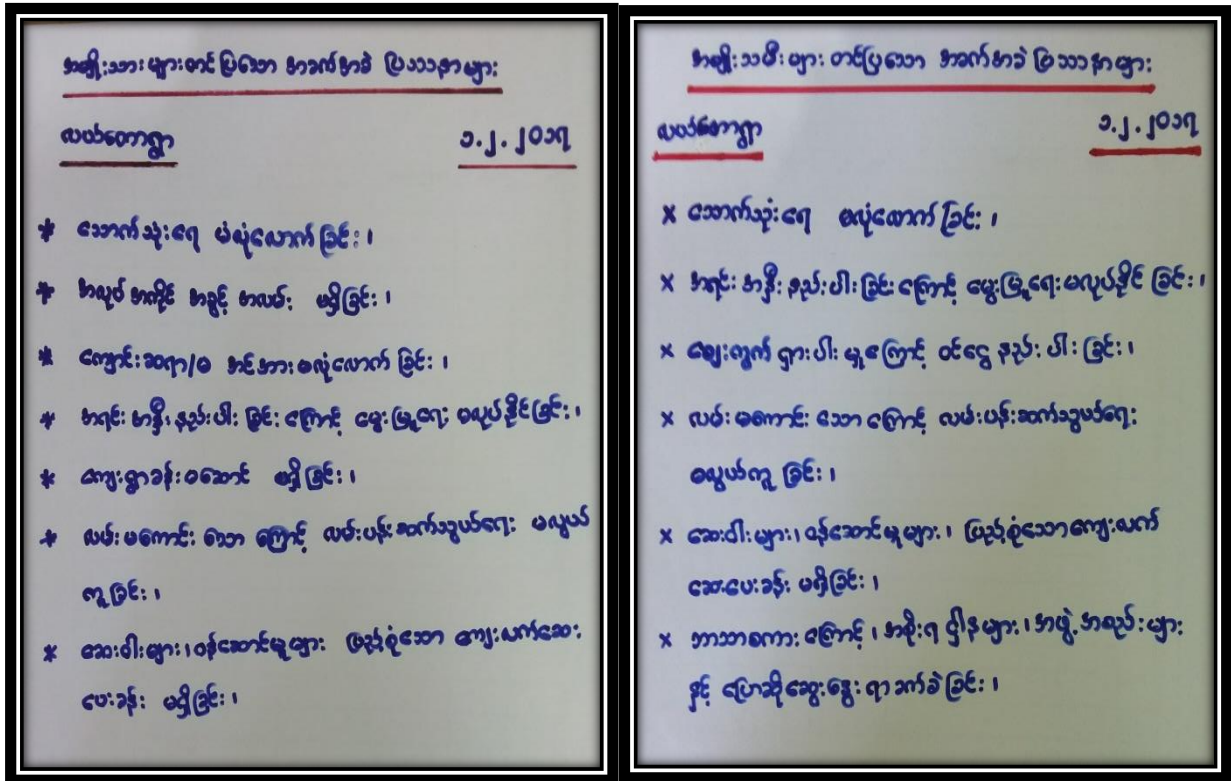 အမျိုးသားများတင်ပြသော အခက်အခဲ ပြဿနာများ
လယ်တောရွာ ၁.၂.၂၀၁၇
* သောက်သုံးရေ မလုံလောက်ခြင်း၊
* အလုပ်အကိုင် အခွင့် အလမ်း မရှိခြင်း၊
* ကျောင်းဆရာ/မ အင်အားမလုံလောက်ခြင်း၊
* အရင်းအနှီးနည်းပါးခြင်းကြောင့် မွေးမြူရေး မလုပ်နိုင်ခြင်း၊
* ကျေးရွာခန်းမဆောင် မရှိခြင်း၊
* လမ်းမကောင်းသောကြောင့် လမ်းပန်းဆက်သွယ်ရေး မလွယ်
ကူခြင်း၊
* ဆေးဝါးများ၊ဝန်ဆောင်မှုများ ပြည့်စုံသော ကျေးလက်ဆေး
ပေးခန်း မရှိခြင်း၊
အမျိုးသမီးများ တင်ပြသော အခက်အခဲ ပြဿနာများ
လယ်တောရွာ ၁.၂.၂၀၁၇
x သောက်သုံးရေ မလုံလောက်ခြင်း၊
x အရင်းအနှီးနည်းပါးခြင်းကြောင့် မွေးမြူရေးမလုပ်နိုင်ခြင်း၊
x ဈေးကွက်ရှားပါးမှုကြောင့် ဝင်ငွေနည်းပါးခြင်း၊
x လမ်းမကောင်းသောကြောင့် လမ်းပန်းဆက်သွယ်ရေး
မလွယ်ကူခြင်း၊
x ဆေးဝါးများ၊ဝန်ဆောင်မှုများ၊ ပြည့်စုံသောကျေးလက်
ဆေးပေးခန်း မရှိခြင်း၊
x ဘာသာစကားကြောင့်၊အစိုးရဌါနများ၊အဖွဲ့အစည်းများ
နှင့် ပြောဆိုဆွေးနွေးရာခက်ခဲခြင်း၊